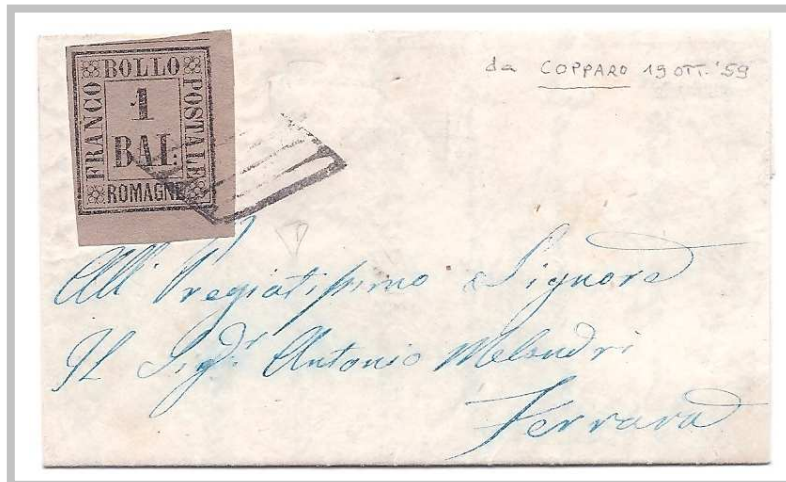 FRANCO
BOLLO
POSTALE
1
BAI:
ROMAGNE
da COPPARO 19 OTT. '59
All' Pregiatissimo Signore
Il Sig.r Antonio Melandri
Ferrara